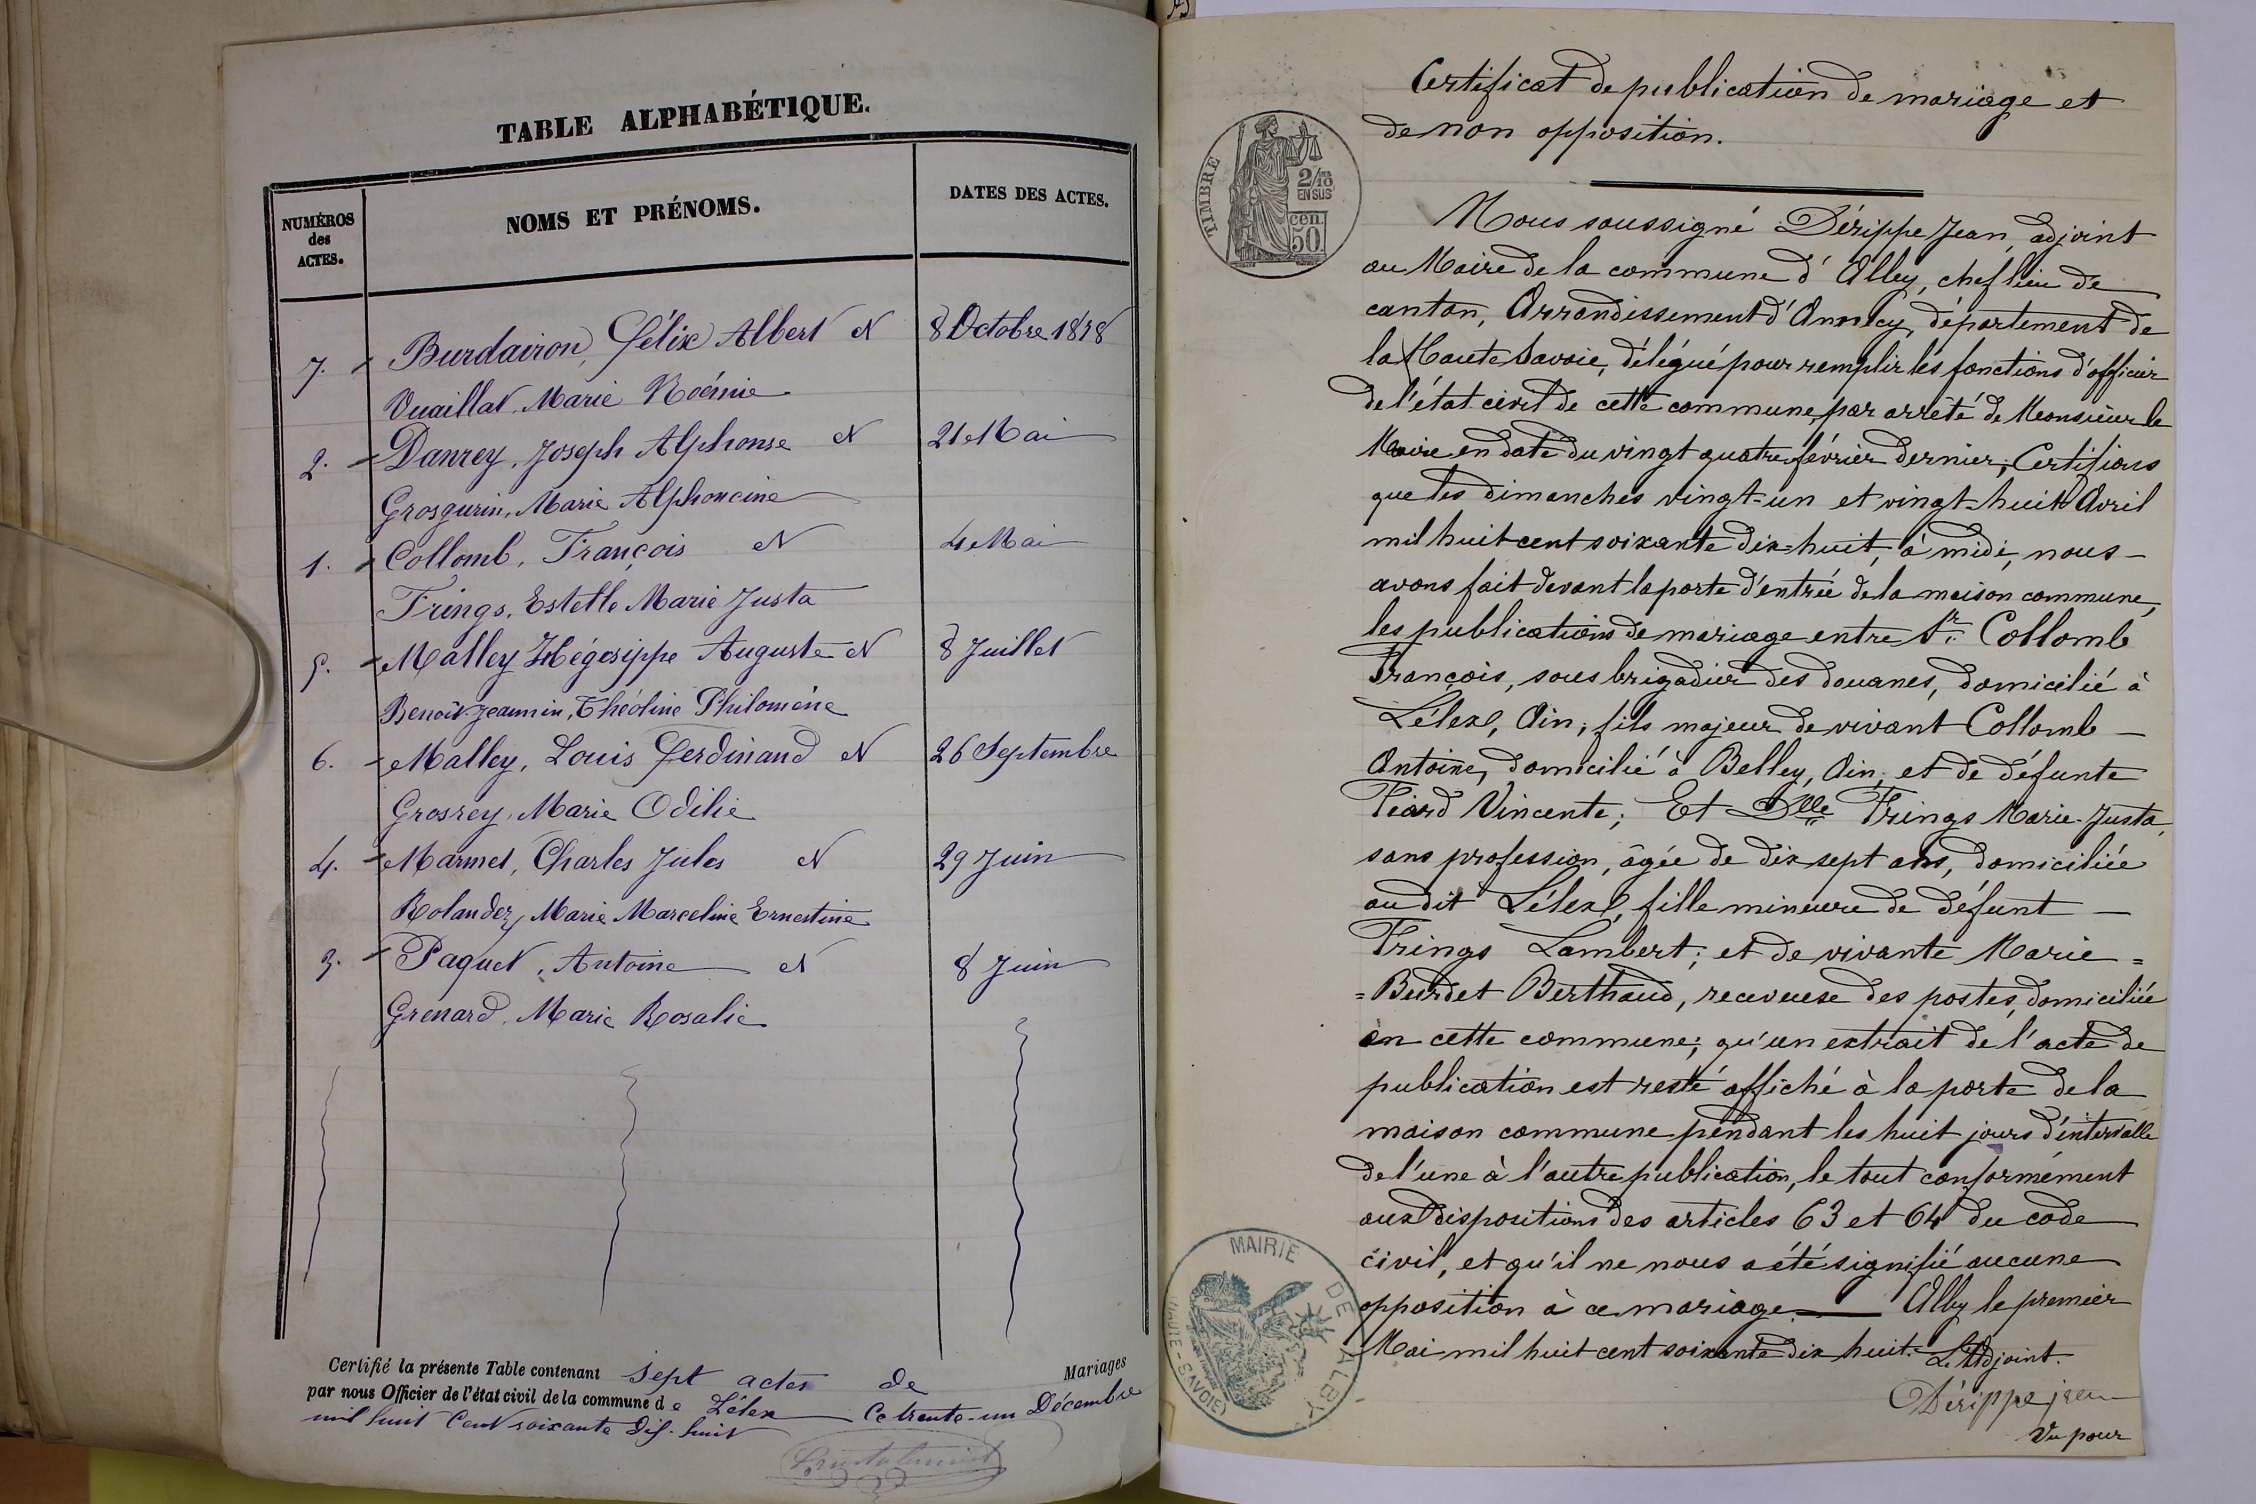 TABLE ALPHABÉTIQUE.
NUMÉROS des ACTES.
NOMS ET PRÉNOMS.
DATES DES ACTES.
7. Burdairon, Félix Albert et 8 Octobre 1878
Vuaillat, Marie Noémie
2. Danrey, Joseph Alphonse et 21 Mai
Grosgurin, Marie Alphoncine
1. Collomb, François et 4 Mai
Frings, Estelle Marie Justa
5. Malley Hégésippe Auguste et 8 Juillet
Benoît-Jeannin, Théoline Philomène
6. Malley, Louis Ferdinand et 26 Septembre
Grosrey, Marie Odilie
4. Marmet, Charles Jules et 29 Juin
Rolandez, Marie Marceline Ernestine
3. Paquet, Antoine et 8 Juin
Grenard, Marie Rosalie
Certifié la présente Table contenant sept actes de Mariages
par nous Officier de l'état civil de la commune de Lélex Ce trente-un Décembre
mil huit cent soixante dix-huit
Certificat de publication de mariage et
de non opposition.
TIMBRE
2/10 EN SUS
50 cen
Nous soussigné Dérippe Jean, adjoint
au Maire de la commune d'Alby, chef lieu de
canton, Arrondissement d'Annecy, département de
la Haute Savoie, délégué pour remplir les fonctions d'officier
de l'état civil de cette commune, par arrêté de Monsieur le
Maire en date du vingt quatre février dernier; Certifions
que les dimanches vingt-un et vingt-huit Avril
mil huit cent soixante dix-huit, à midi, nous
avons fait devant la porte d'entrée de la maison commune,
les publications de mariage entre Sr. Collomb
François, sous brigadier des douanes, domicilié à
Lélex, Ain; fils majeur de vivant Collomb
Antoine, domicilié à Belley, Ain; et de défunte
Viard Vincente; Et Dlle Frings Marie-Justa,
sans profession, âgée de dix sept ans, domiciliée
au dit Lélex, fille mineure de défunt
Frings Lambert; et de vivante Marie =
= Burdet Berthaud, receveuse des postes, domiciliée
en cette commune; qu'un extrait de l'acte de
publication est resté affiché à la porte de la
maison commune pendant les huit jours d'intervalle
de l'une à l'autre publication, le tout conformément
aux dispositions des articles 63 et 64 du code
civil, et qu'il ne nous a été signifié aucune
opposition à ce mariage. Alby le premier
Mai mil huit cent soixante dix huit. L'Adjoint.
Dérippe jean
Vu pour
MAIRIE DE ALBY
(HAUTE-SAVOIE)